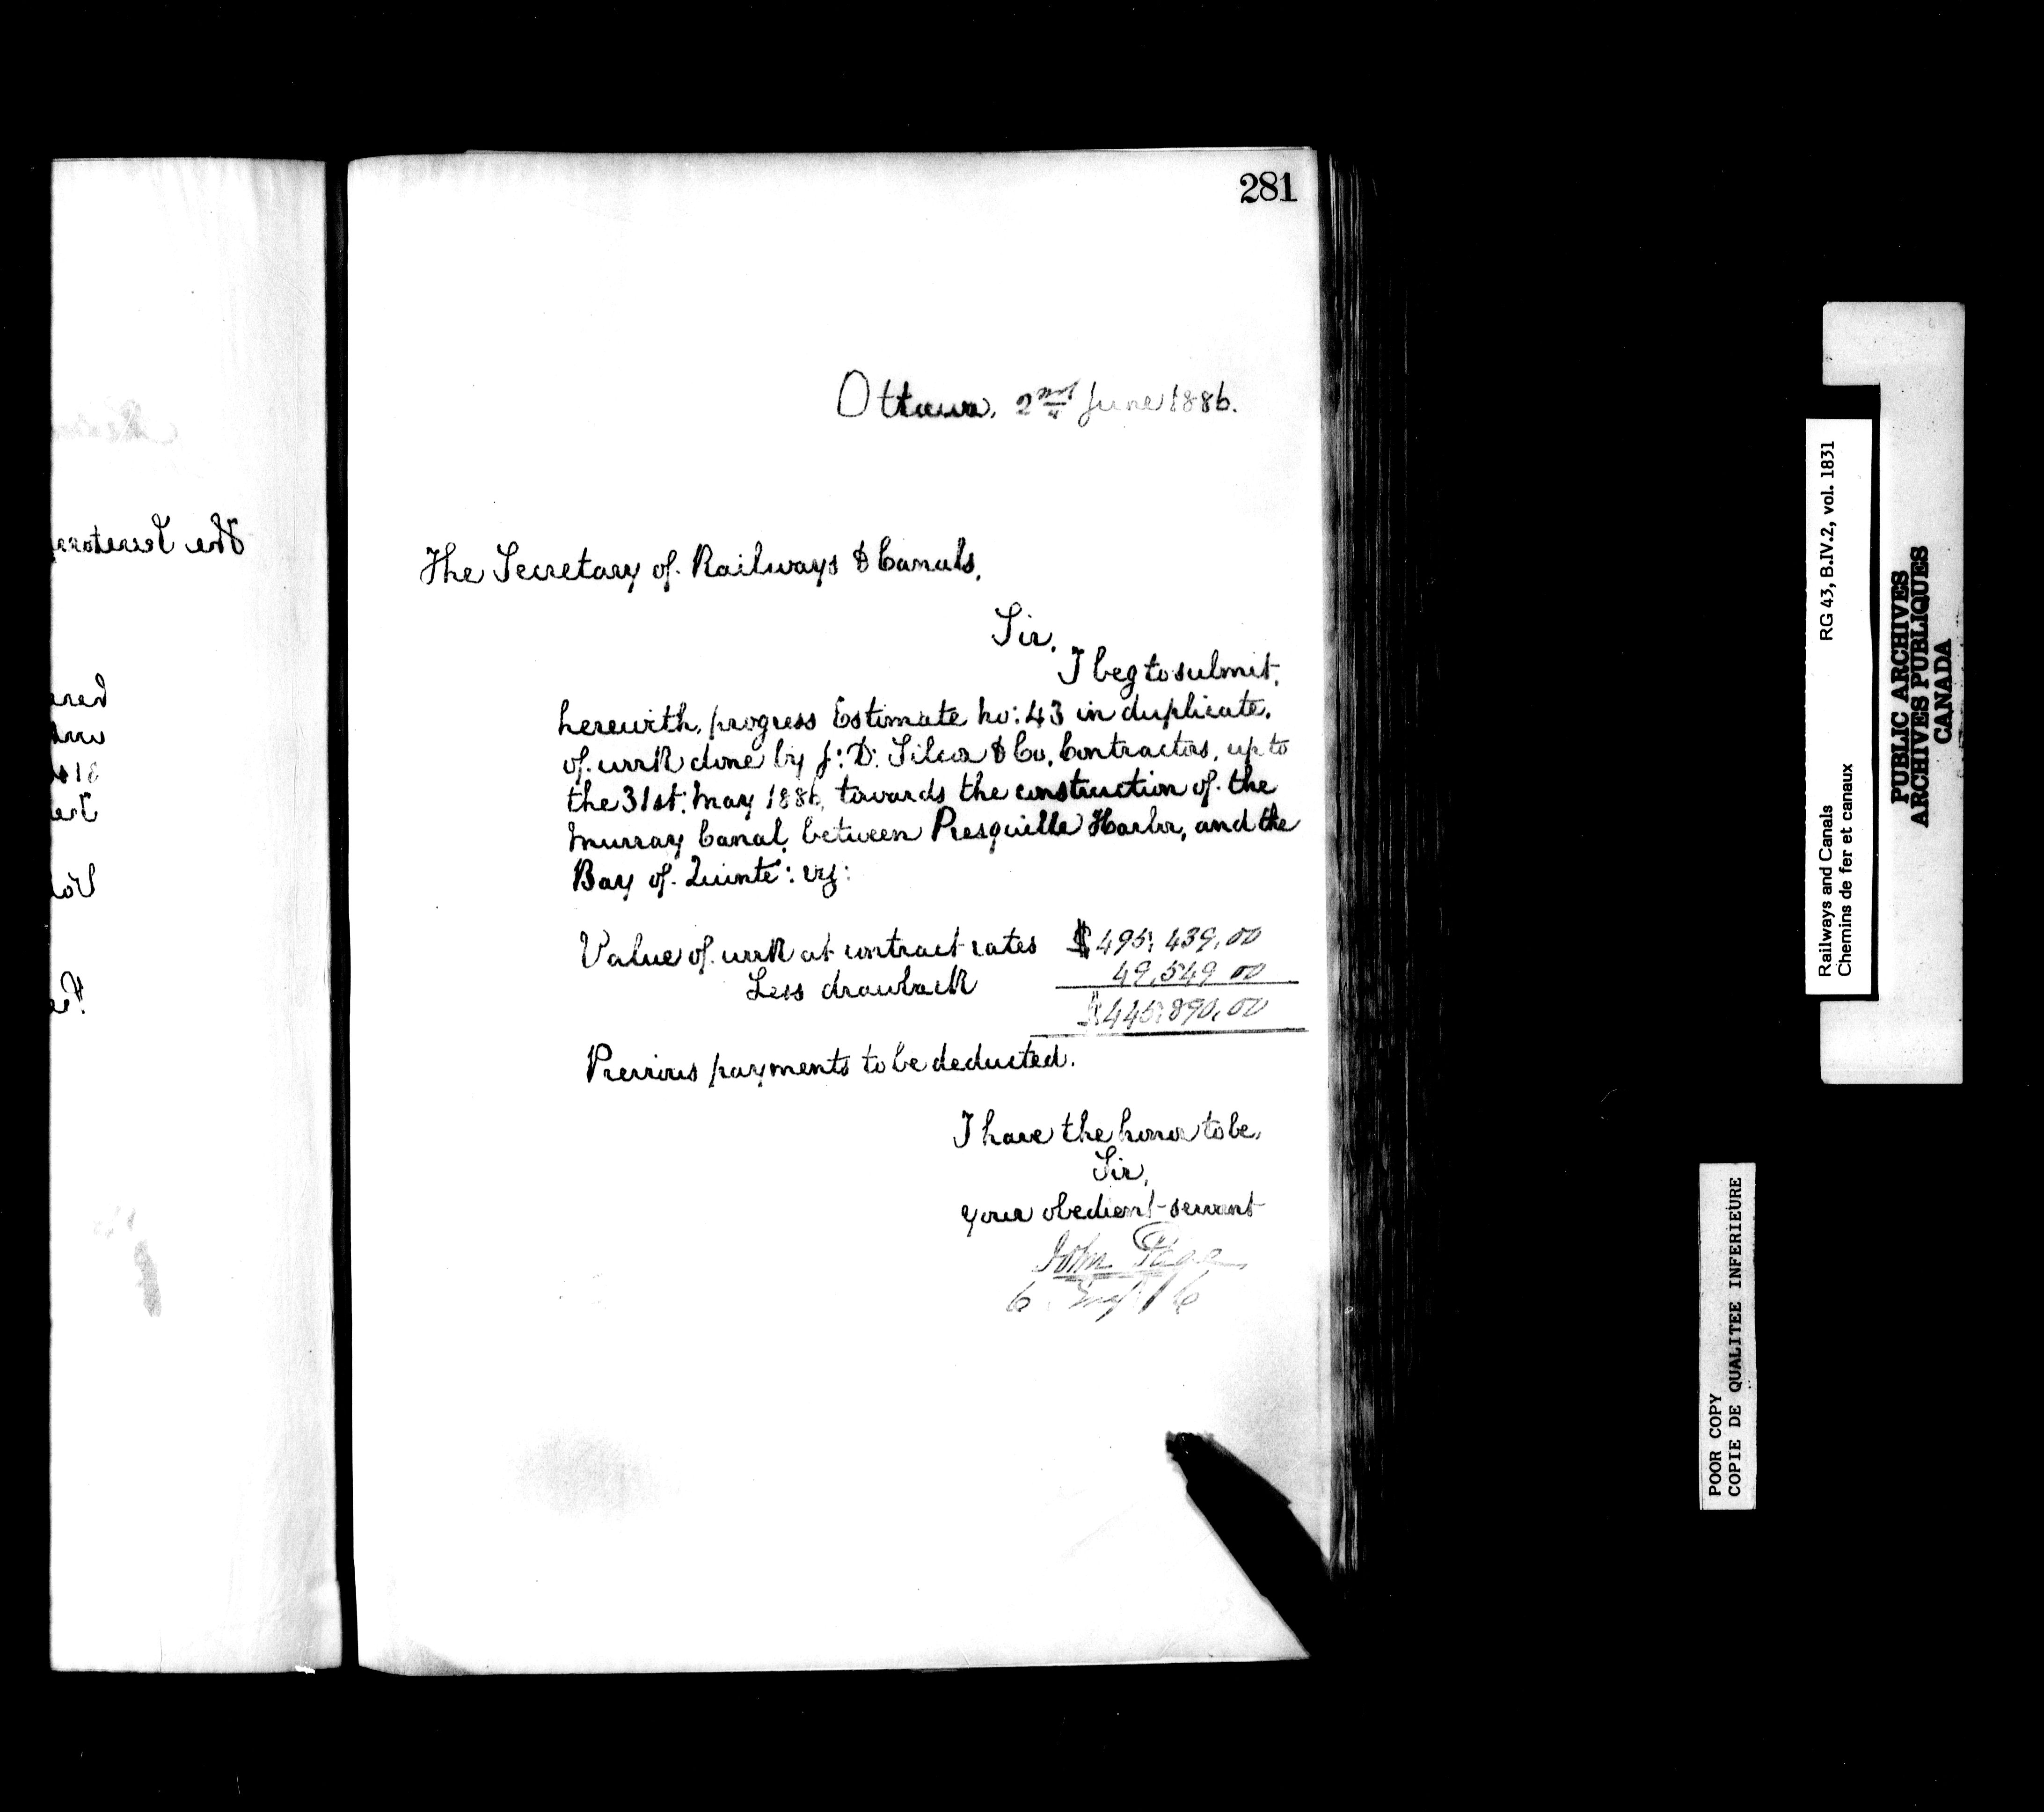 281
Ottawa, 2nd June 1886.
The Secretary of Railways & Canals,
Sir,
I beg to submit,
herewith, progress Estimate No: 43 in duplicate,
of work done by J: D: Silcox & Co, Contractors, up to
the 31st. May 1886, towards the construction of the
Murray Canal, between Presquille Harbor, and the
Bay of Quinté: viz:
Value of work at contract rates $495,439.00
Less drawback 49,549 00
$445,890.00
Previous payments to be deducted.
I have the honor to be,
Sir,
your obedient servant
John Page
RG 43, B.IV.2, vol. 1831
Railways and Canals
Chemins de fer et canaux
PUBLIC ARCHIVES
ARCHIVES PUBLIQUES
CANADA
POOR COPY
COPIE DE QUALITEE INFERIEURE